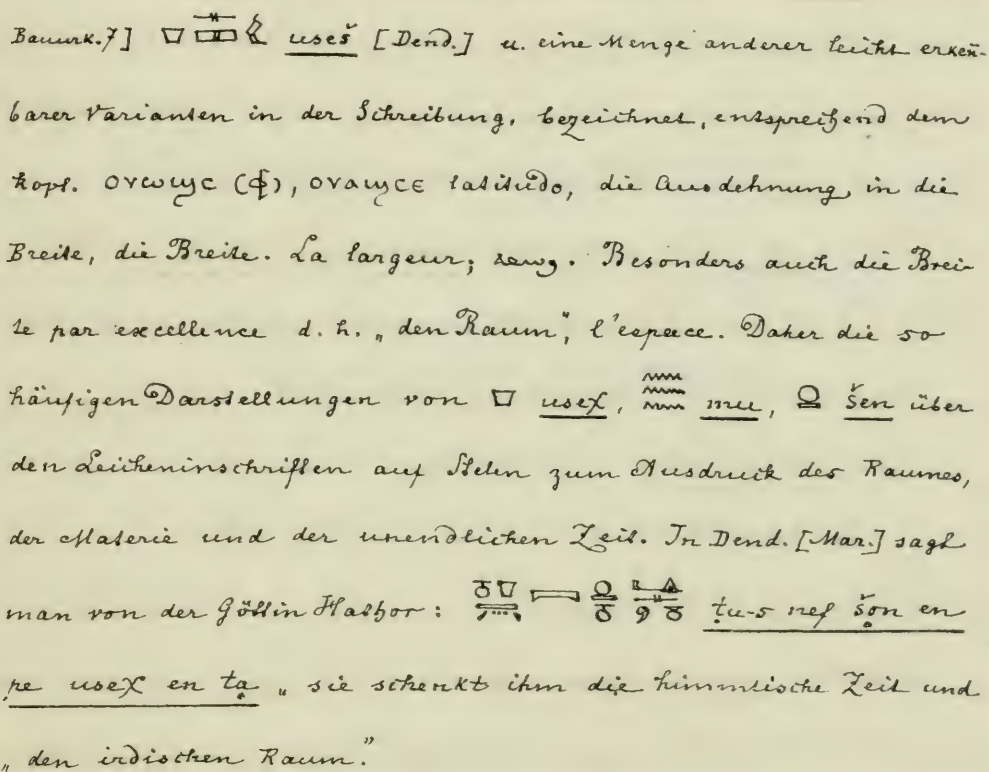 Bauurk. 7] usеš [Dend.] u. eine Menge anderer leicht erkeñ-
barer Varianten in der Schreibung, bezeichnet, entsprechend dem
kopt. ⲟⲩⲱϣⲥ (ⲫ), ⲟⲩⲁϣⲥⲉ latitudo, die Ausdehnung in die
Breite, die Breite. La largeur; . Besonders auch die Brei-
te par excellence d. h. „den Raum“, l'espace. Daher die so
häufigen Darstellungen von useχ, mu, šen über
den Leicheninschriften auf Stelen zum Ausdruck des Raumes,
der Materie und der unendlichen Zeit. In Dend. [Mar.] sagt
man von der Göttin Hathor: ṭu-s nef šon en
pe useχ en ta „sie schenkt ihm die himmlische Zeit und
„den irdischen Raum.”